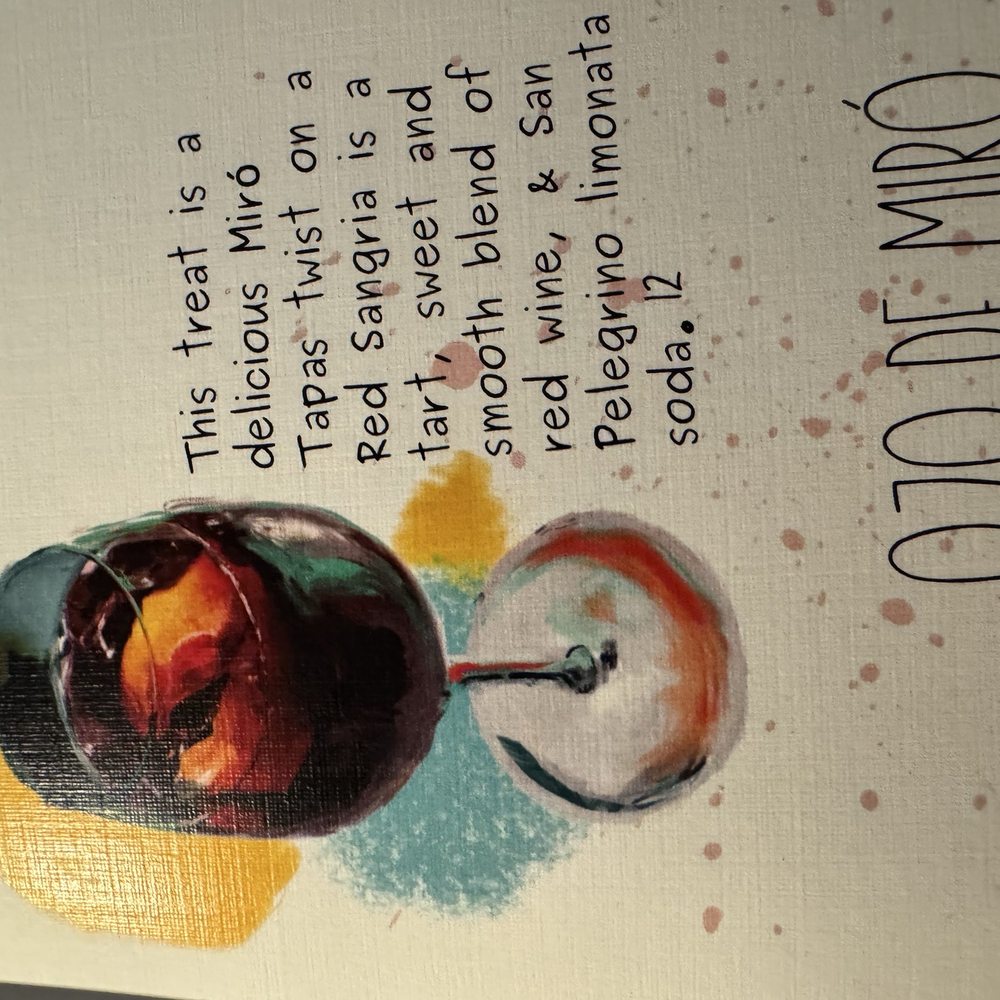 This treat is a
delicious Miró
Tapas twist on a
Red Sangria is a
tart, sweet and
smooth blend of
red wine, & San
Pelegrino limonata
soda. 12
OJO DE MIRÓ